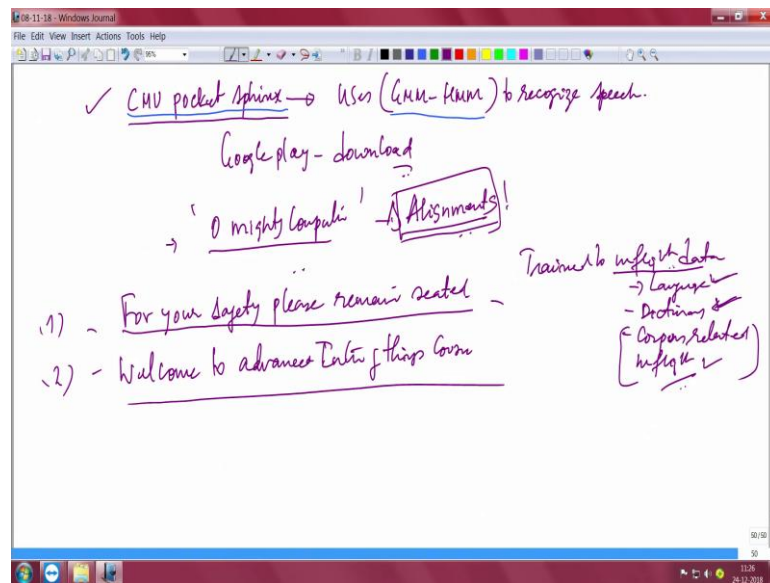 08-11-18 - Windows Journal
File Edit View Insert Actions Tools Help
✓ CMU pocket sphinx → Uses (GMM-HMM) to recognize speech.
Google play - download
→ 'O mighty Computer' → Alignments!
Trained to inflight data
→ Language ✓
- Dictionary ✓
- Corpus related inflight ✓
.1) - For your safety please remain seated -
.2) - Welcome to advance Intern of things Course
50/50
50
11:26
24-12-2018